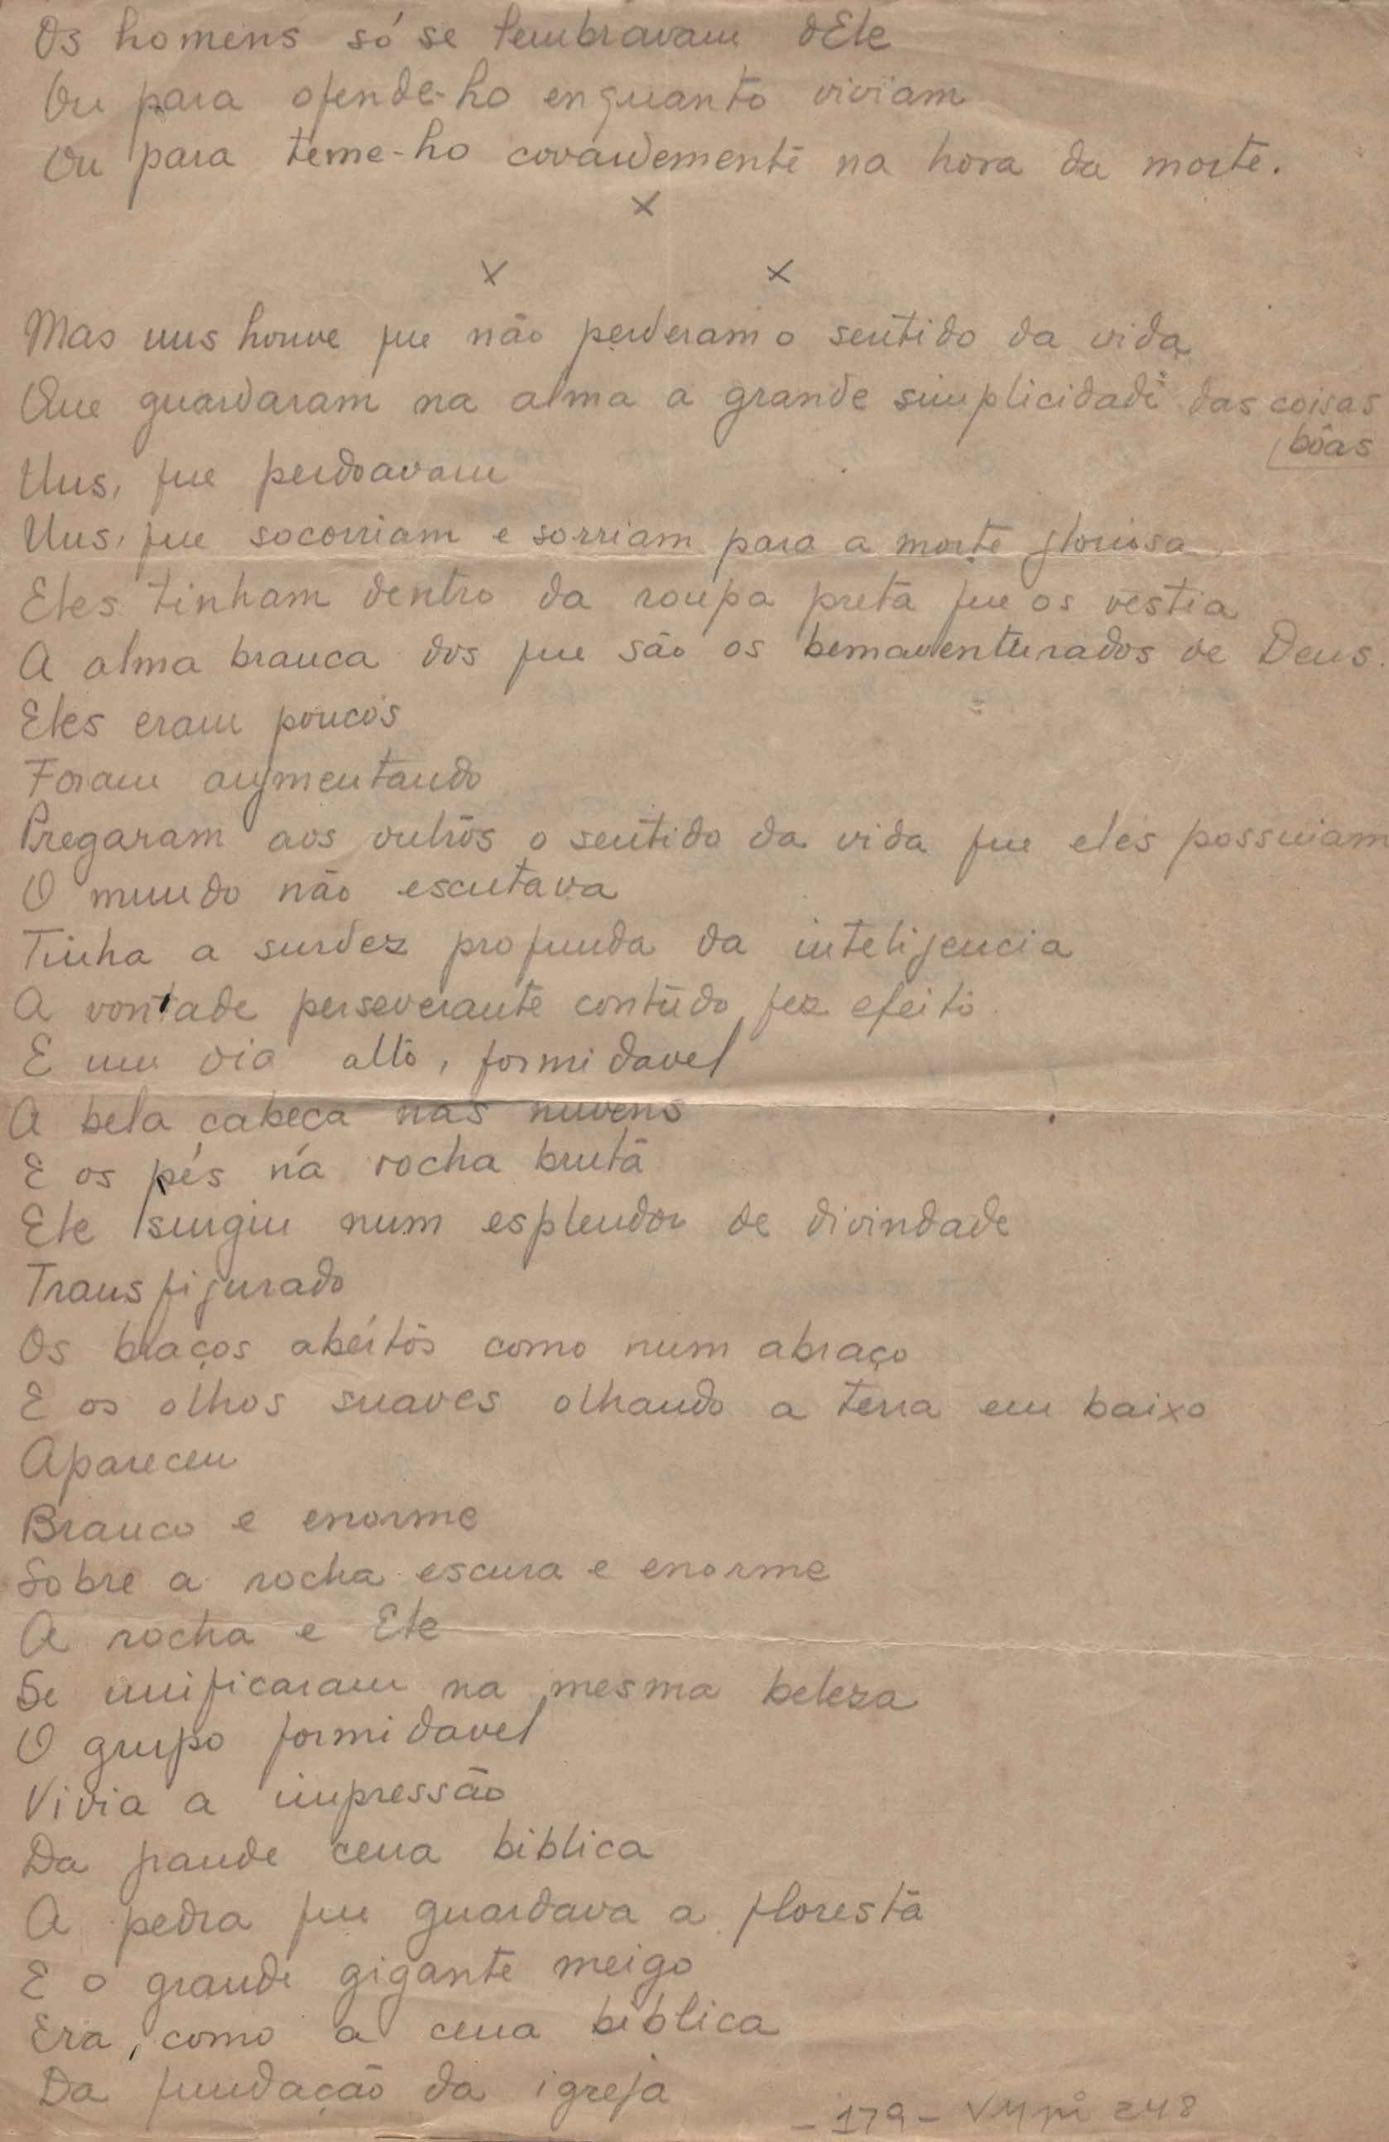 Os homens só se lembravam dEle
Ou para ofende-lo enquanto viviam
Ou para teme-lo covardemente na hora da morte.
x
x x
Mas uns houve que não perderam o sentido da vida
Que guardaram na alma a grande simplicidade das coisas
bôas
Uns, que perdoavam
Uns, que socorriam e sorriam para a morte gloriosa,
Eles tinham dentro da roupa preta que os vestia
A alma branca dos que são os bemaventurados de Deus.
Eles eram poucos
Foram augmentando
Pregaram aos outros o sentido da vida que eles possuiam
O mundo não escutava
Tinha a surdez profunda da inteligencia
A vontade perseverante contudo fez efeito.
E um dia alto, formidavel
A bela cabeça nas nuvens
E os pés na rocha bruta
Ele surgiu num esplendor de divindade
Transfigurado
Os braços abertos como num abraço
E os olhos suaves olhando a terra em baixo
Apareceu
Branco e enorme
Sobre a rocha escura e enorme
A rocha e Ele
Se unificaram na mesma beleza
O grupo formidavel
Vivia a impressão
Da grande cena biblica
A pedra que guardava a floresta
E o grande gigante meigo
Era, como a cena biblica
Da fundação da igreja
- 179 - 248